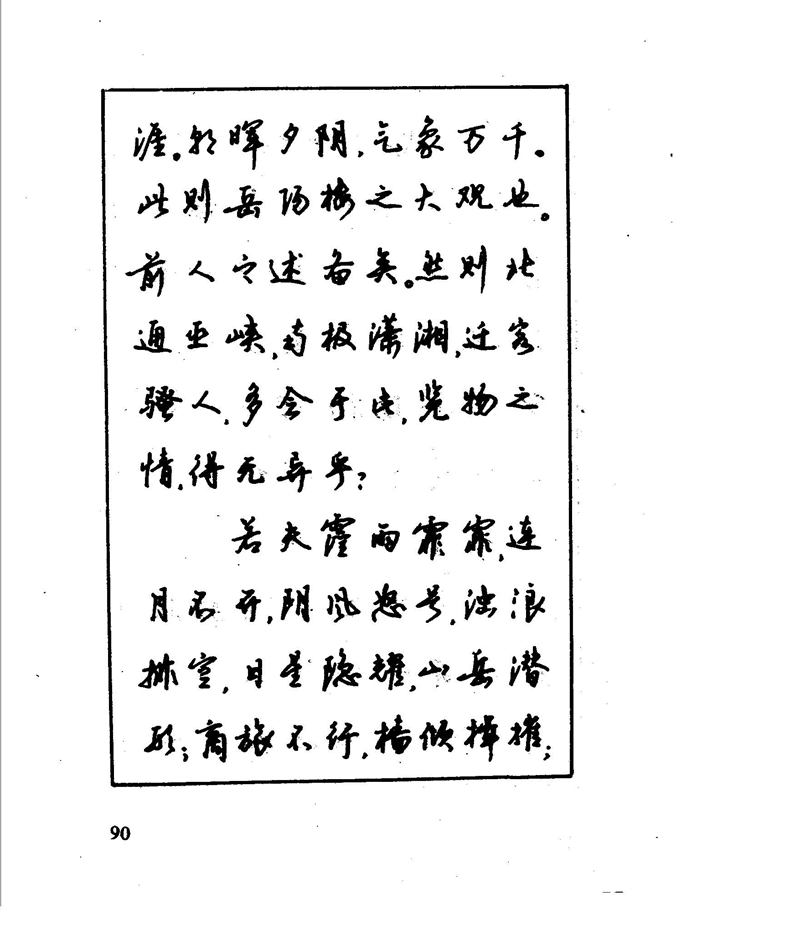 涯。朝晖夕阴,气象万千。
此则岳阳楼之大观也。
前人之述备矣。然则北
通巫峡,南极潇湘,迁客
骚人,多会于此,览物之
情,得无异乎?
若夫霪雨霏霏,连
月不开,阴风怒号,浊浪
排空,日星隐耀,山岳潜
形;商旅不行,樯倾楫摧;
90